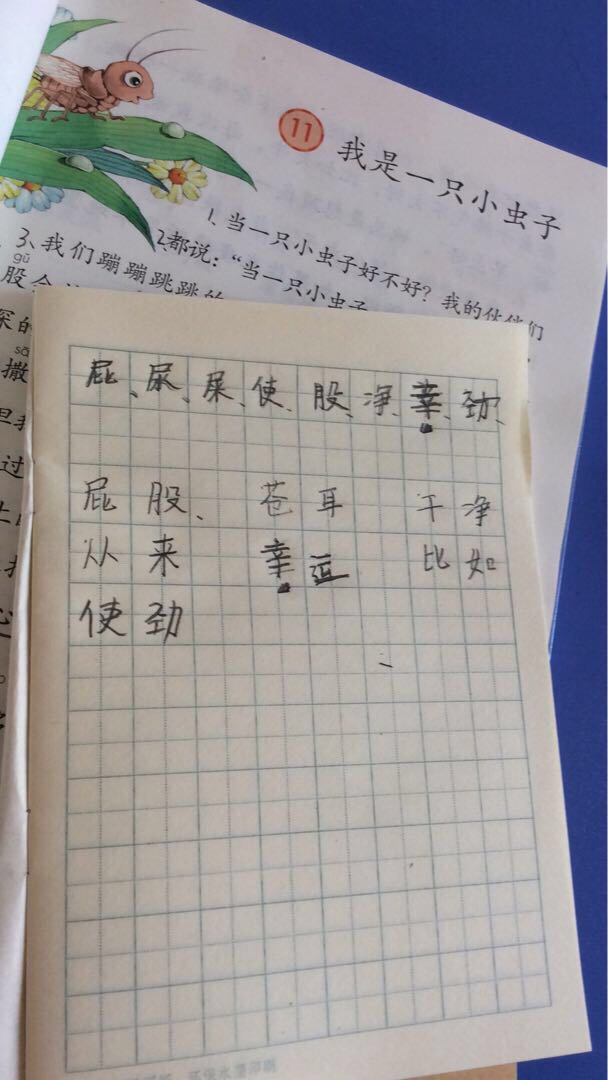 11 我是一只小虫子
1、当一只小虫子好不好？我的伙伴们
2都说：“当一只小虫子
3、我们蹦蹦跳跳的
gǔ
股会
深的
sā
撒
但我
过
心
屁、尿、屎、使、股、净、幸、劲、
屁股、 苍耳 干净
从来 幸运 比如
使劲